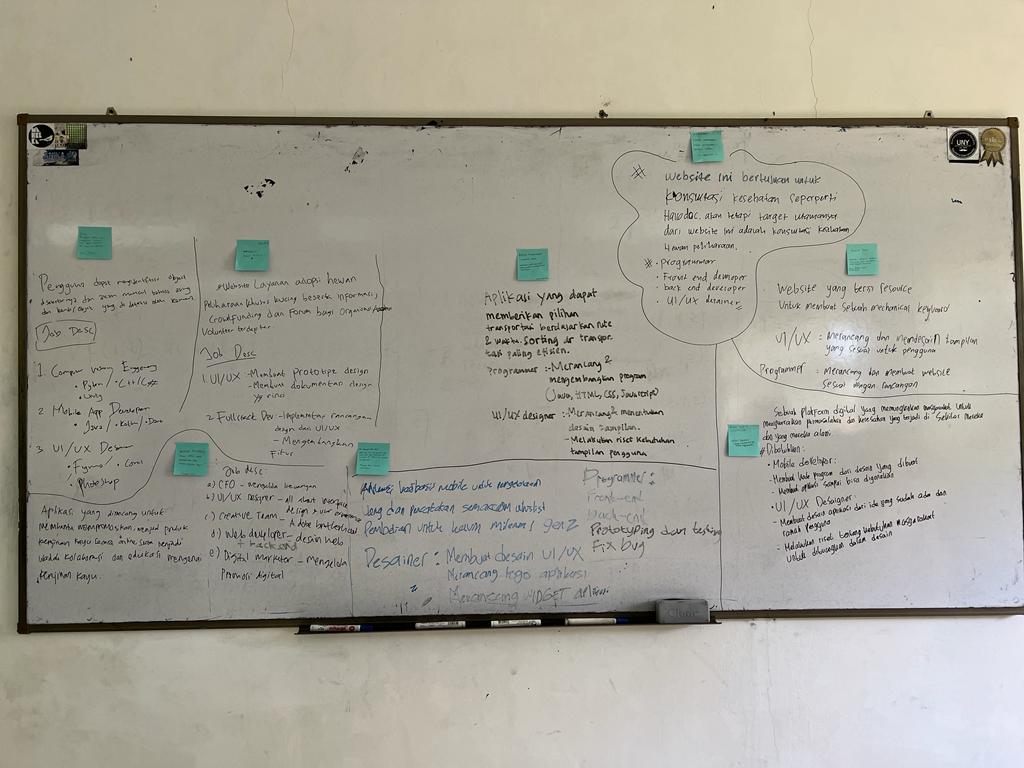 UNY
Pengguna dapat
Job Desc
1. Computer Vision
• Python • C++/C#
• Unity
2 Mobile App Developer
• Java • Kotlin • Dart
3 UI/UX
• Figma • Corel
• Photoshop
*Website Layanan adopsi hewan
Peliharaan khusus kucing beserta informasi,
Crowdfunding dan Forum bagi organisasi
Volunteer
Job Desc
1. UI/UX - Membuat Prototipe design
- Membuat dokumentasi design
yg rinci
2. Fullstack Dev - Implementasi rancangan
design dari UI/UX
- Mengembangkan
Fitur
Aplikasi yang dapat
memberikan pilihan
transportasi berdasarkan rute
& waktu. Sorting dr transpor
tasi paling efisien.
Programmer :- Merancang &
mengembangkan program
(Java, HTML, CSS, Javascript)
UI/UX designer :- Merancang & menentukan
desain tampilan.
- Melakukan riset kebutuhan
tampilan pengguna
* Website ini bertujuan untuk
Konsultasi kesehatan seperti
Halodoc. akan tetapi target utamanya
dari website ini adalah konsultasi kesehatan
hewan peliharaan.
* • Programmer
- Front end developer
- back end developer
• UI/UX desainer
Website yang berisi resource
Untuk membuat sebuah mechanical keyboard
UI/UX : Merancang dan mendesain tampilan
yang sesuai untuk pengguna
Programmer : merancang dan membuat website
sesuai dengan rancangan
Aplikasi yang dirancang untuk
membantu mempromosikan, menjual produk
kerajinan kayu
wadah kolaborasi dan edukasi mengenai
kerajinan kayu.
Job desc:
a) CFO - mengelola keuangan
b) UI/UX Designer - all about interface
design & user experience
c) Creative Team -
d) Web developer - desain web
+ backend
e) Digital marketer - mengelola
Promosi digital
berbasis mobile untuk pengelolaan
uang dan pencatatan
untuk kaum milenial / gen Z
Desainer : Membuat desain UI/UX
Merancang logo aplikasi
Merancang WIDGET aplikasi
Programmer :
Front-end
Back-end
Prototyping dan testing
Fix bug
Sebuah platform digital yang memungkinkan masyarakat untuk
menyuarakan permasalahan dan keresahan yang terjadi di sekitar mereka
dan yang mereka alami.
# Dibutuhkan:
• Mobile developer:
- Membuat kode program dari desain yang dibuat
- Membuat aplikasi sampai bisa digunakan
• UI/UX Designer:
- Membuat desain aplikasi dari ide yang sudah ada dan
ramah pengguna
- Melakukan riset tentang kebutuhan masyarakat
untuk dituangkan dalam desain